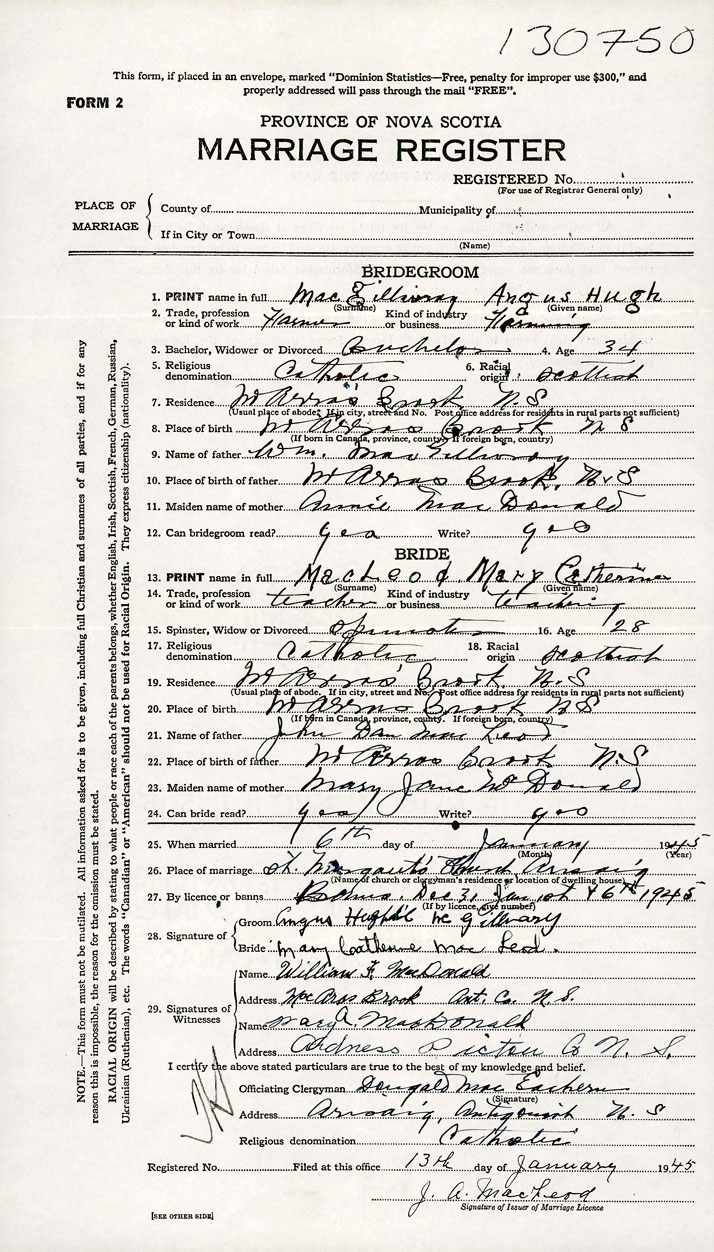 130750
This form, if placed in an envelope, marked "Dominion Statistics—Free, penalty for improper use $300," and
properly addressed will pass through the mail "FREE".
FORM 2
PROVINCE OF NOVA SCOTIA
MARRIAGE REGISTER
REGISTERED No.
(For use of Registrar General only)
PLACE OF MARRIAGE
County of Municipality of
If in City or Town
(Name)
BRIDEGROOM
1. PRINT name in full MacGillivray Angus Hugh
(Surname) (Given name)
2. Trade, profession or kind of work Farmer Kind of industry or business Farming
3. Bachelor, Widower or Divorced Bachelor 4. Age 34
5. Religious denomination Catholic 6. Racial origin Scottish
7. Residence McArras Brook N.S
(Usual place of abode. If in city, street and No. Post office address for residents in rural parts not sufficient)
8. Place of birth McArras Brook N S
(If born in Canada, province, county. If foreign born, country)
9. Name of father Wm. MacGillivray
10. Place of birth of father McArras Brook, N.S
11. Maiden name of mother Annie MacDonald
12. Can bridegroom read? yes Write? yes
BRIDE
13. PRINT name in full MacLeod Mary Catherine
(Surname) (Given name)
14. Trade, profession or kind of work teacher Kind of industry or business teaching
15. Spinster, Widow or Divorced Spinster 16. Age 28
17. Religious denomination Catholic 18. Racial origin Scottish
19. Residence McArras' Brook, N.S
(Usual place of abode. If in city, street and No. Post office address for residents in rural parts not sufficient)
20. Place of birth McArras Brook NS
(If born in Canada, province, county. If foreign born, country)
21. Name of father John Dan MacLeod
22. Place of birth of father McArras Brook N.S
23. Maiden name of mother Mary Jane McDonald
24. Can bride read? yes Write? yes
25. When married 6th day of January 1945
(Month) (Year)
26. Place of marriage St. Margaret's Church Arisaig
(Name of church or clergyman's residence or location of dwelling house)
27. By licence or banns Banns. Dec 31, Jan 1st & 6th 1945
(If by licence, give number)
28. Signature of
Groom Angus Hugh McGillivary
Bride Mary Catherine Mac Leod.
29. Signatures of Witnesses
Name William F. MacDonald
Address McArras Brook Ant. Co. N.S.
Name Mary A. MacDonald
Address Ardness Pictou Co N. S.
I certify the above stated particulars are true to the best of my knowledge and belief.
Officiating Clergyman Dougald MacEachern
(Signature)
Address Arisaig, Antigonish N. S
Religious denomination Catholic
Registered No. Filed at this office 13th day of January 1945
J. A. MacLeod
Signature of Issuer of Marriage Licence
[SEE OTHER SIDE]
NOTE.—This form must not be mutilated. All information asked for is to be given, including full Christian and surnames of all parties, and if for any
reason this is impossible, the reason for the omission must be stated.
RACIAL ORIGIN will be described by stating to what people or race each of the parents belongs, whether English, Irish, Scottish, French, German, Russian,
Ukrainian (Ruthenian), etc. The words "Canadian" or "American" should not be used for Racial Origin. They express citizenship (nationality).